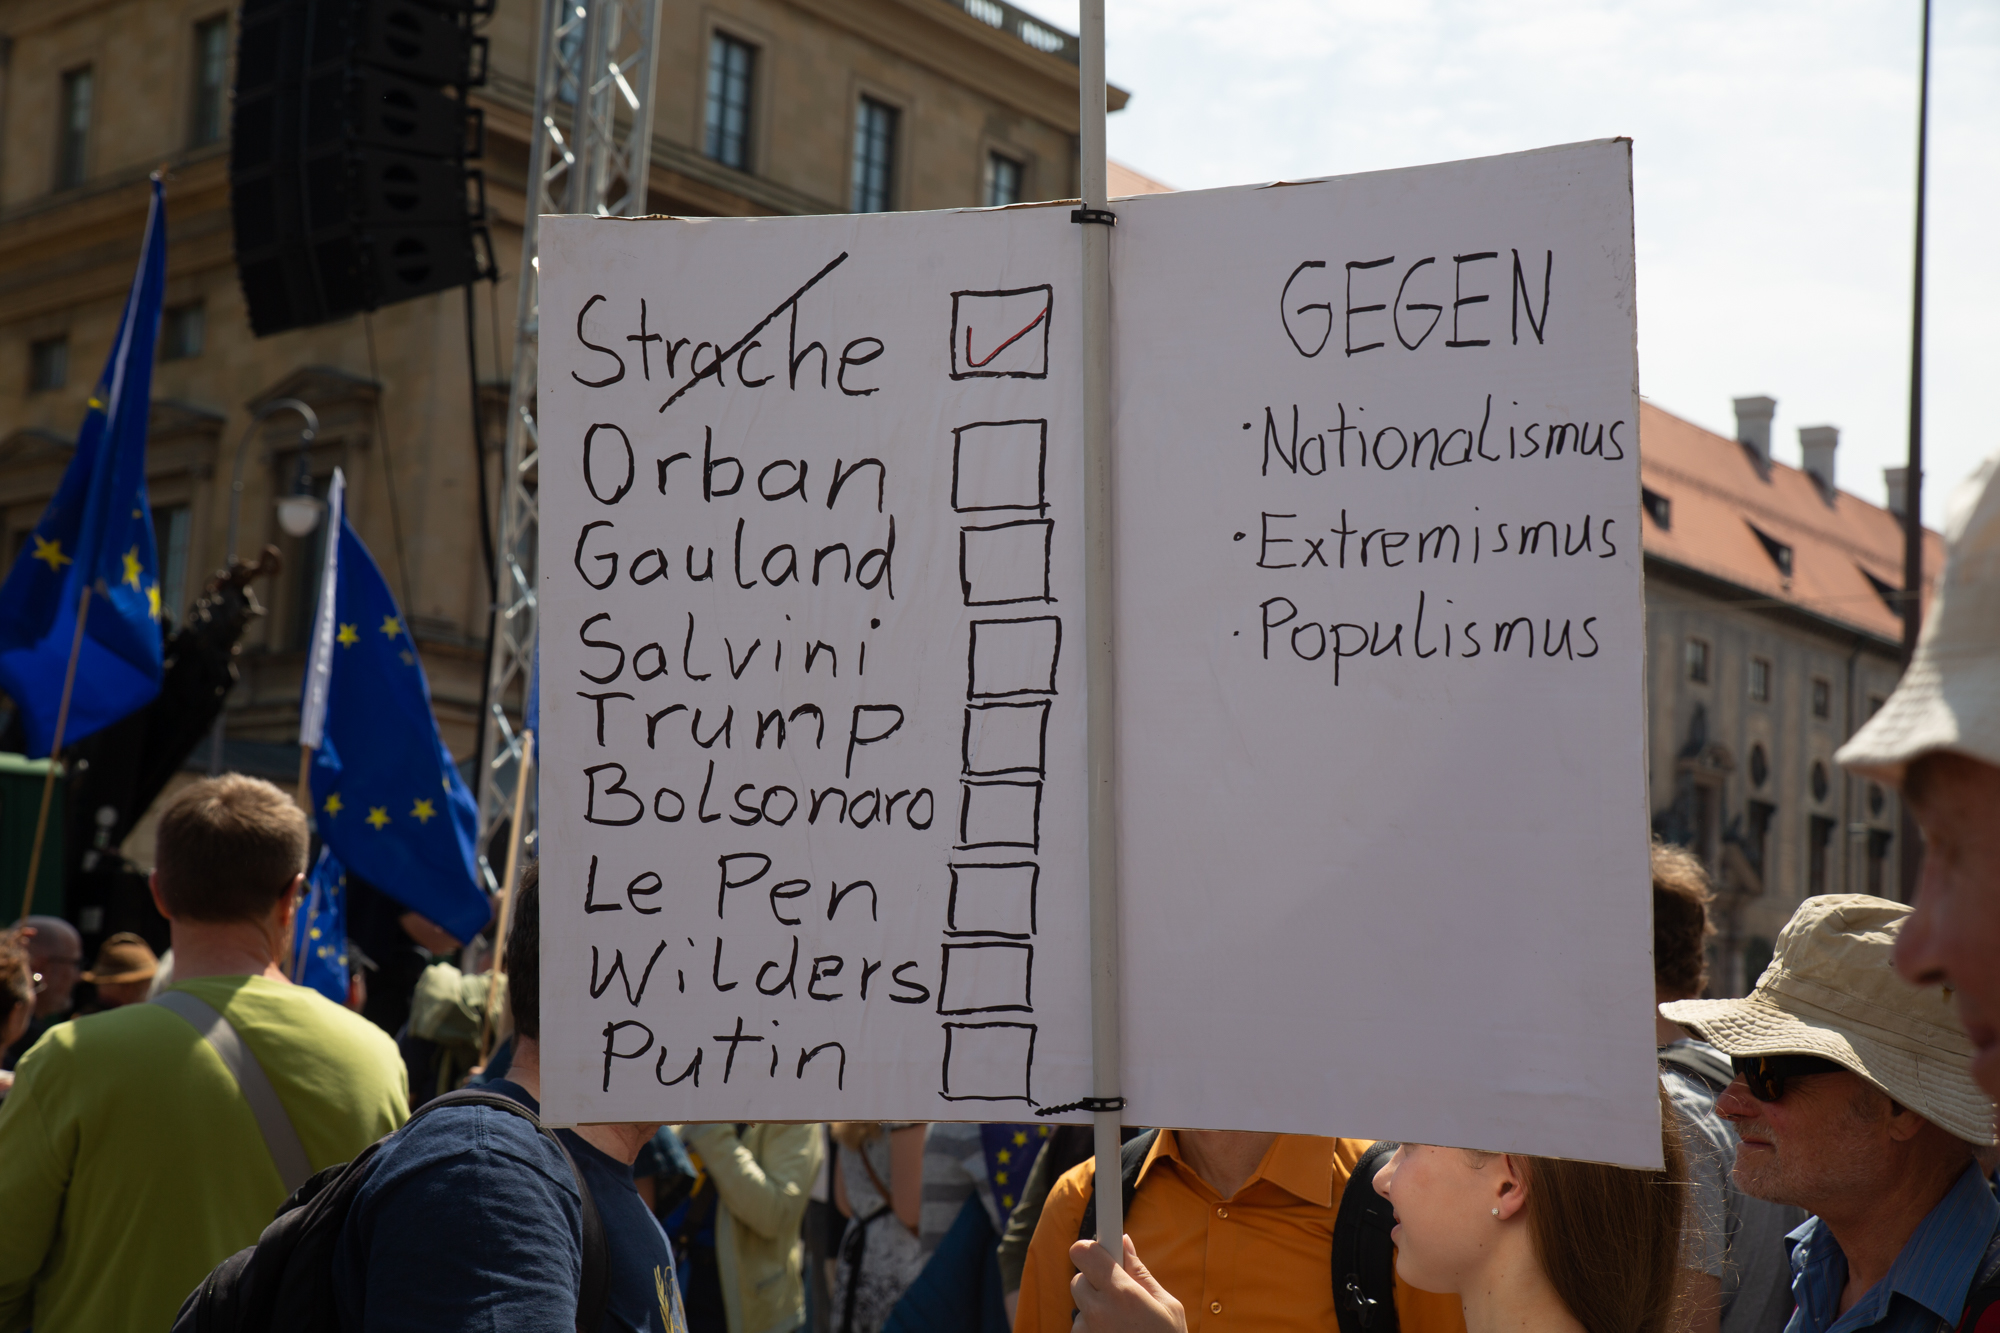 Strache
Orban
Gauland
Salvini
Trump
Bolsonaro
Le Pen
Wilders
Putin
GEGEN
· Nationalismus
· Extremismus
· Populismus